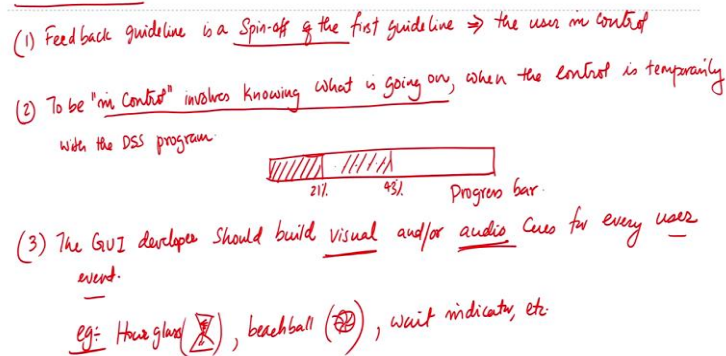 (1) Feedback guideline is a Spin-off of the first guideline ⇒ the user in control
(2) To be "in Control" involves knowing what is going on, when the control is temporarily
with the DSS program.
21% 43% Progress bar.
(3) The GUI developer should build visual and/or audio Cues for every user
event.
eg:- Hourglass ( ), beachball ( ), wait indicator, etc.